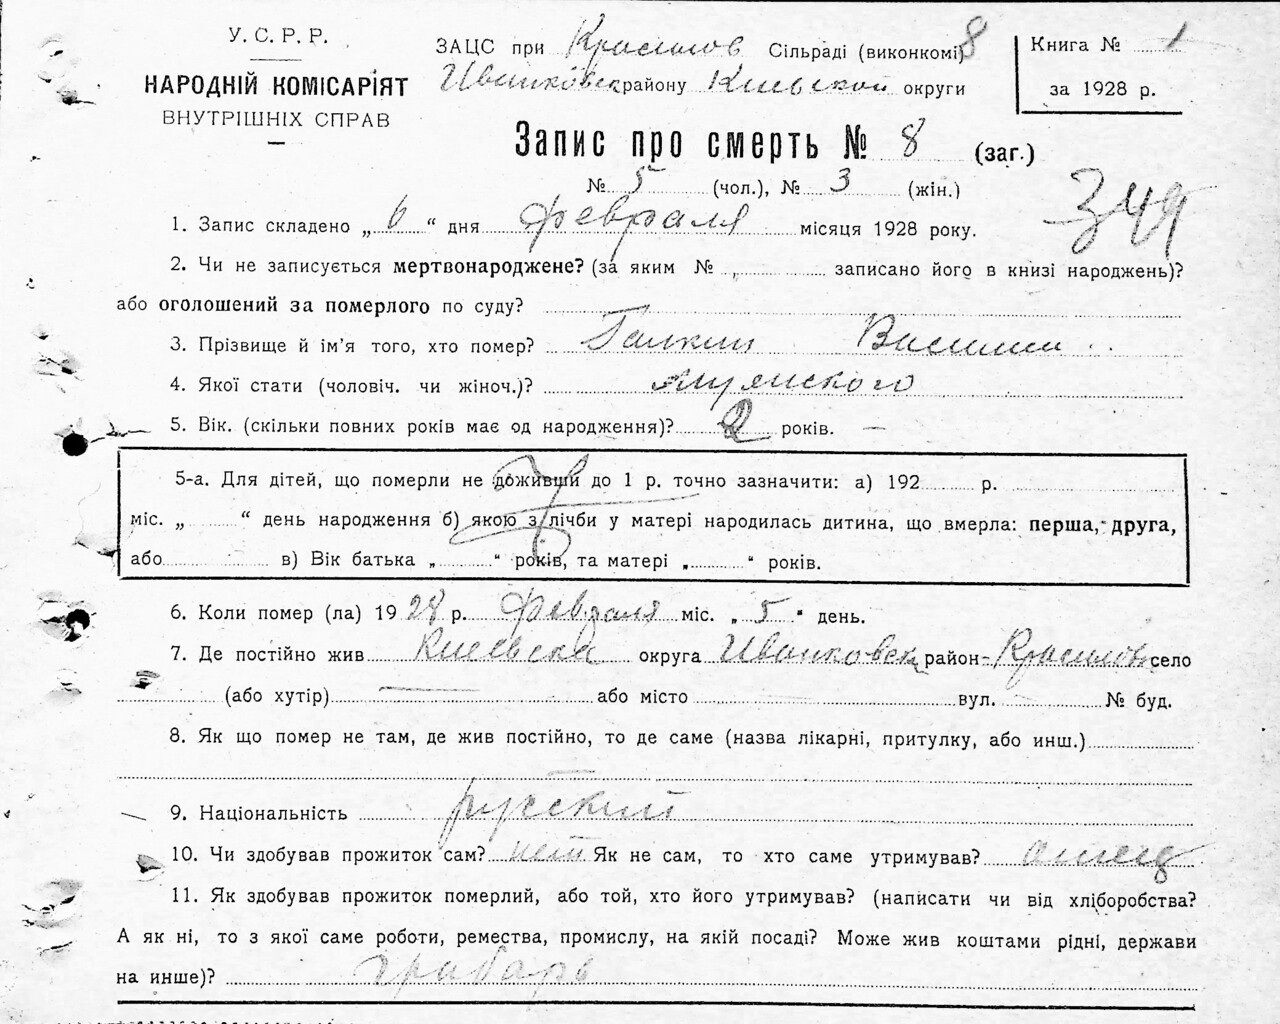 У. С. Р. Р.
НАРОДНІЙ КОМІСАРІЯТ
ВНУТРІШНІХ СПРАВ
ЗАЦС при Красилов Сільраді (виконкомі) 8
Иванковск району Киевской округи
Книга № 1
за 1928 р.
Запис про смерть № 8 (заг.)
№ 5 (чол.), № 3 (жін.)
349
1. Запис складено „ 6 “ дня февраля місяця 1928 року.
2. Чи не записується мертвонароджене? (за яким № записано його в книзі народжень)?
або оголошений за померлого по суду?
3. Прізвище й ім'я того, хто помер? Галкин Василий
4. Якої стати (чоловіч. чи жіноч.)? мужского
5. Вік. (скільки повних років має од народження)? 2 років. —
5-а. Для дітей, що померли не доживши до 1 р. точно зазначити: а) 192 р.
міс. „ “ день народження б) якою з лічби у матері народилась дитина, що вмерла: перша, друга,
або в) Вік батька „ “ років, та матері „ “ років.
6. Коли помер (ла) 1928 р. февраля міс. „ 5 “ день.
7. Де постійно жив Киевска округа Иванковск район- Красилов село
(або хутір) або місто вул. № буд.
8. Як що помер не там, де жив постійно, то де саме (назва лікарні, притулку, або инш.)
9. Національність русский
10. Чи здобував прожиток сам? нет Як не сам, то хто саме утримував? отец
11. Як здобував прожиток померлий, або той, хто його утримував? (написати чи від хліборобства?
А як ні, то з якої саме роботи, ремества, промислу, на якій посаді? Може жив коштами рідні, держави
на инше)? грабарь